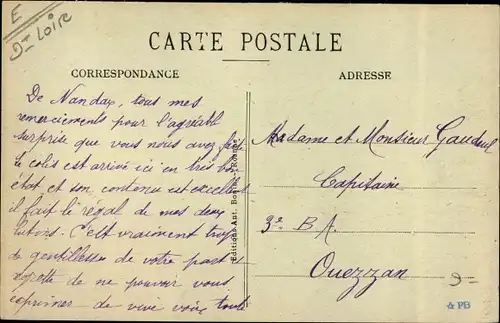 E
Dt Loire
CARTE POSTALE
CORRESPONDANCE
ADRESSE
De Nandax, tous mes
remerciements pour l'agréable
surprise que vous nous avez faite
le colis est arrivé ici en très bon
état et son contenu est excellent
il fait le régal de mes deux
lutins. C'est vraiment trop
de gentillesse de votre part
regrette de ne pouvoir vous
exprimer de vive voix toute
Editions Ant.
Madame et Monsieur Gaudeul
Capitaine
3e B A.
Ouezzan
9-
& PB